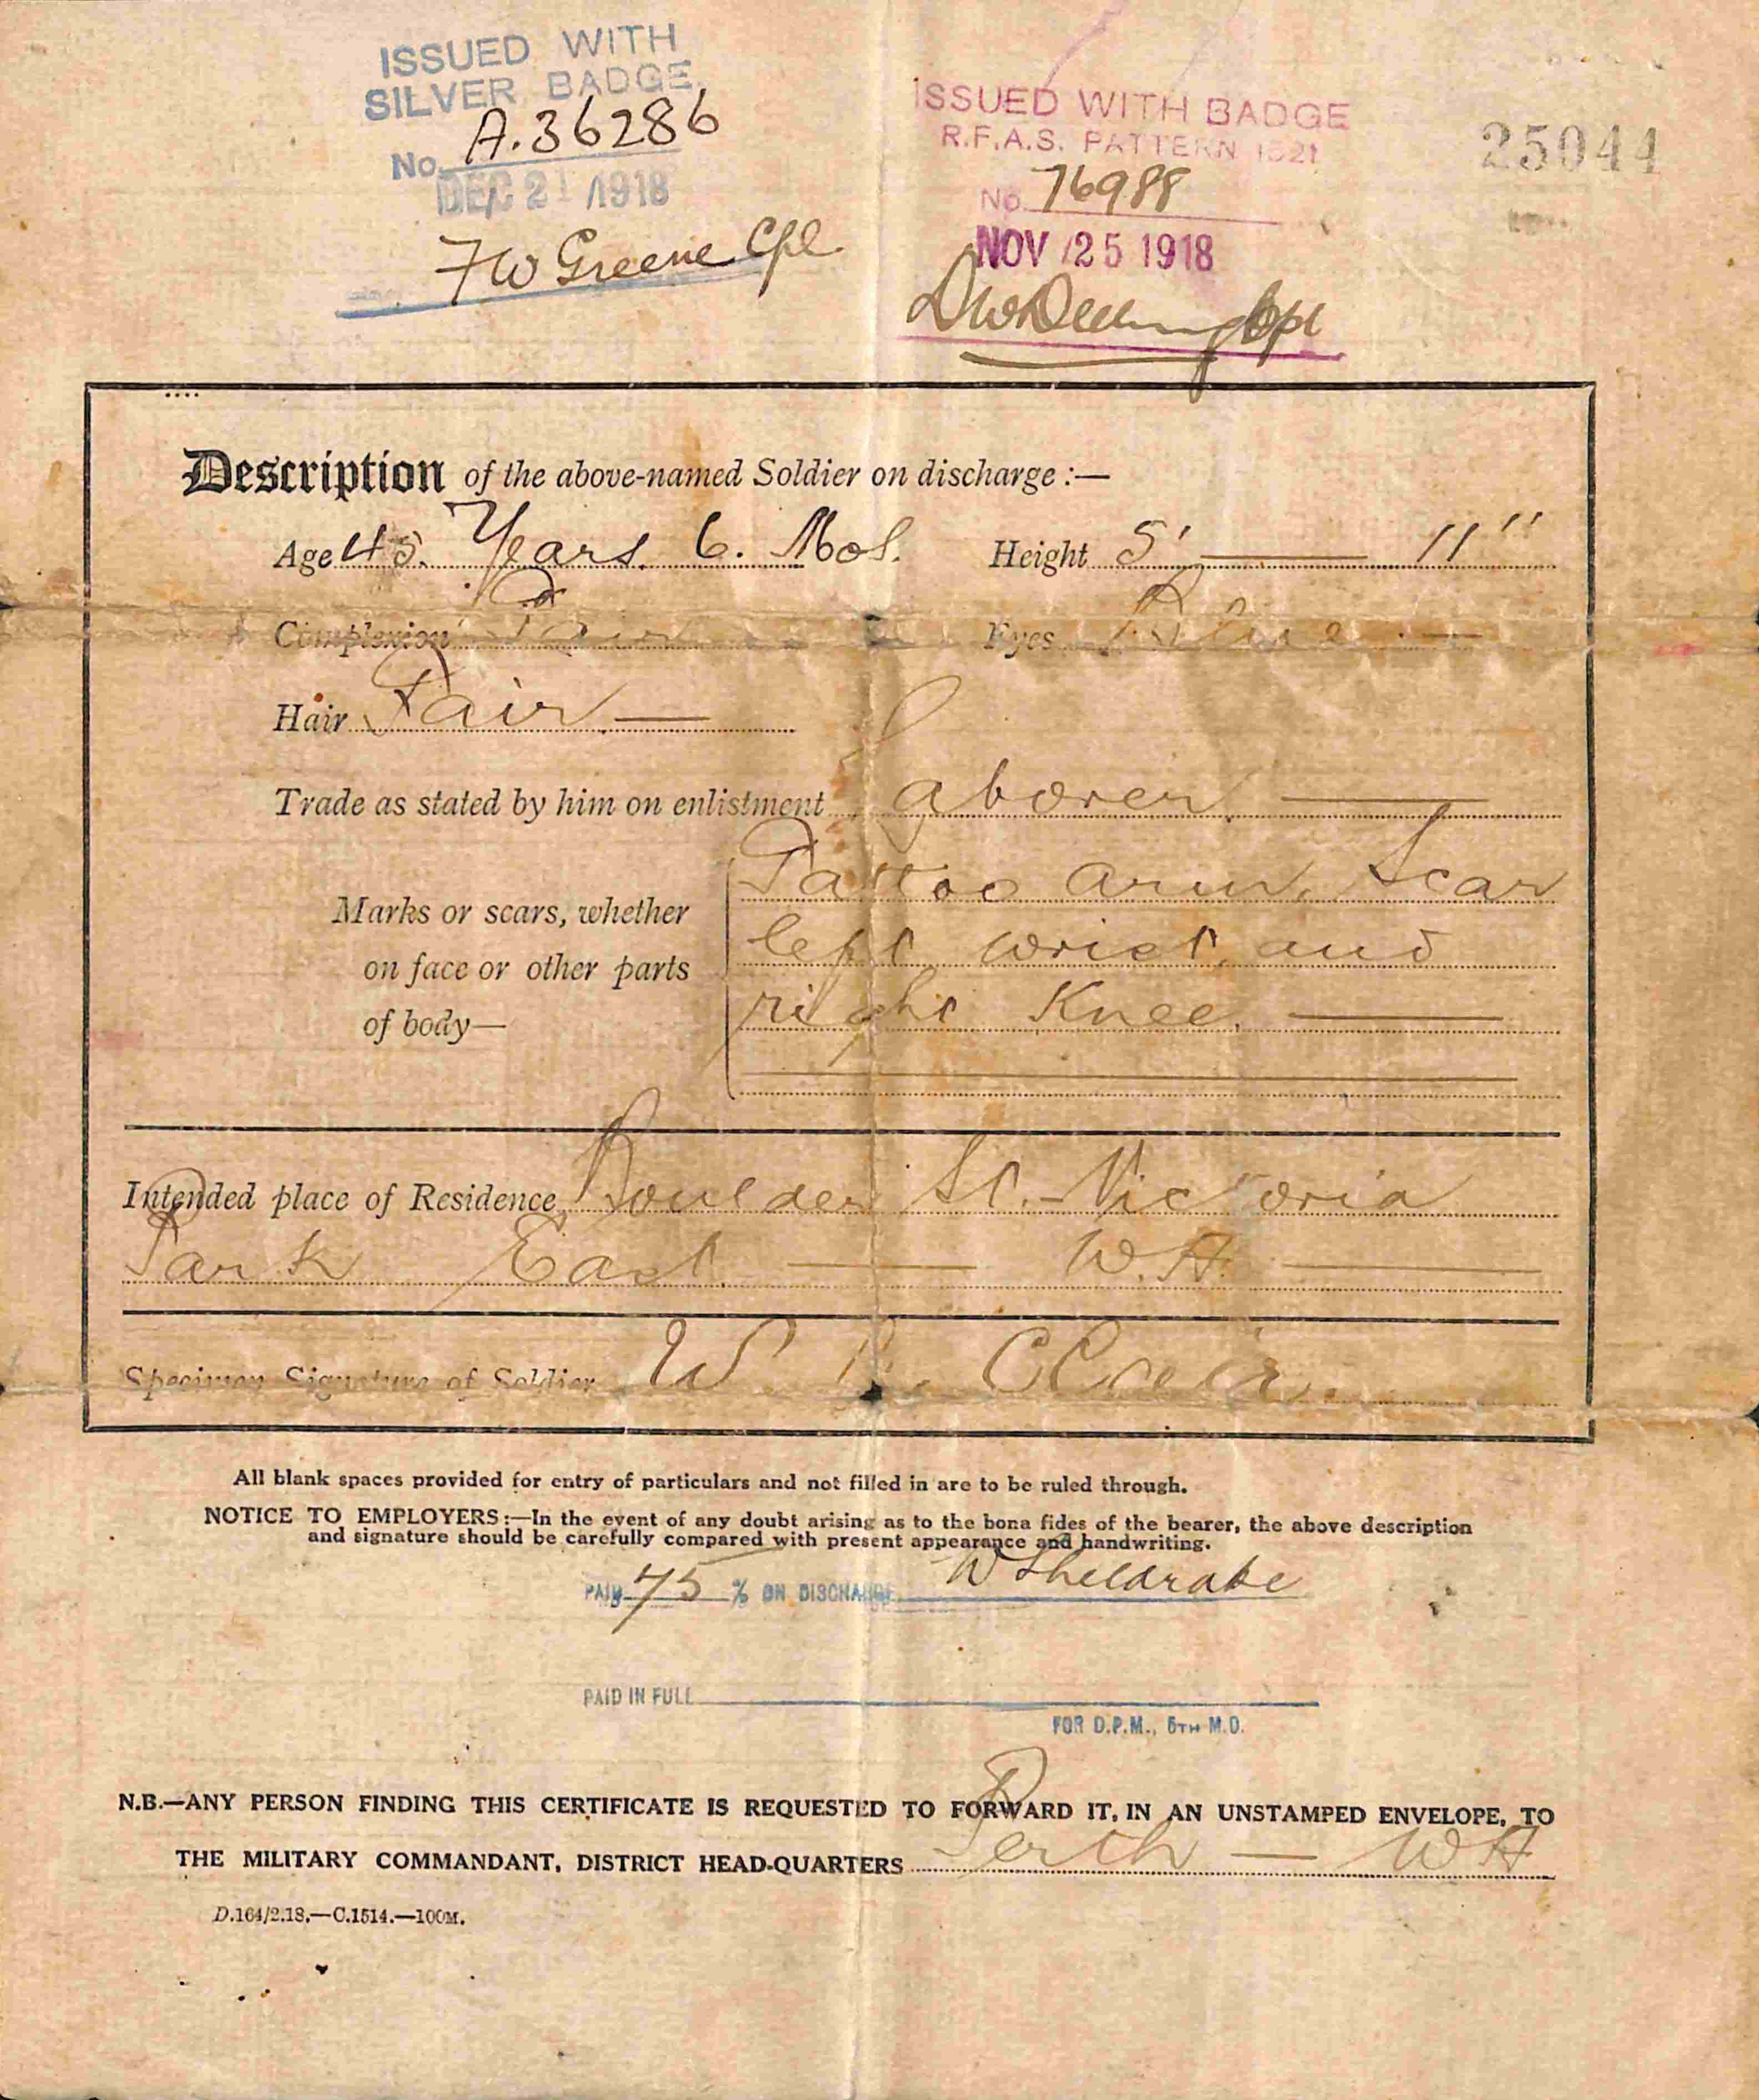 ISSUED WITH
SILVER BADGE
No. A.36286
DEC 21 1918
FW Greene Cpl
ISSUED WITH BADGE
R.F.A.S. PATTERN 1521
No. 76988
NOV 25 1918
Cpl
25044
Description of the above-named Soldier on discharge :—
Age 45. Years. 6. Mos. Height 5' — 11"
Complexion Fair Eyes Blue —
Hair Fair —
Trade as stated by him on enlistment Laborer. —
Marks or scars, whether on face or other parts of body—
Tattoo arm, Scar
left wrist, and
right Knee. —
Intended place of Residence Boulder St. Victoria
Park East. — W.A. —
Specimen Signature of Soldier W.
All blank spaces provided for entry of particulars and not filled in are to be ruled through.
NOTICE TO EMPLOYERS :—In the event of any doubt arising as to the bona fides of the bearer, the above description
and signature should be carefully compared with present appearance and handwriting.
PAID 75 % ON DISCHARGE W Sheldrake
PAID IN FULL
FOR D.P.M., 5TH M.D.
N.B.—ANY PERSON FINDING THIS CERTIFICATE IS REQUESTED TO FORWARD IT, IN AN UNSTAMPED ENVELOPE, TO
THE MILITARY COMMANDANT, DISTRICT HEAD-QUARTERS Perth — WA
D.164/2.18.—C.1514.—100M.